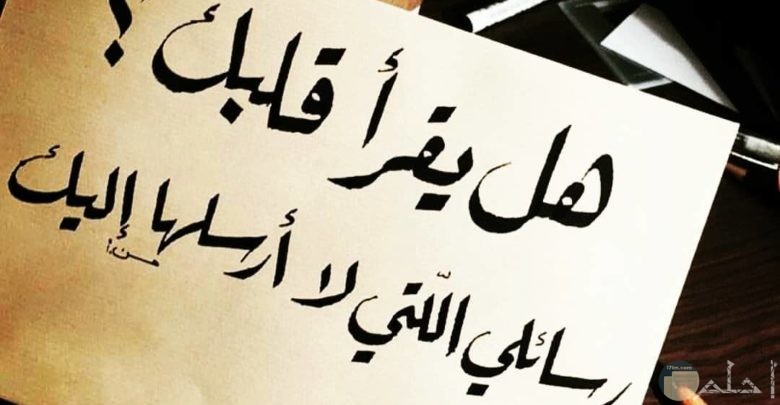 هل يقرأ قلبك ؟
رسائلي اللّتي لا أرسلها إليك